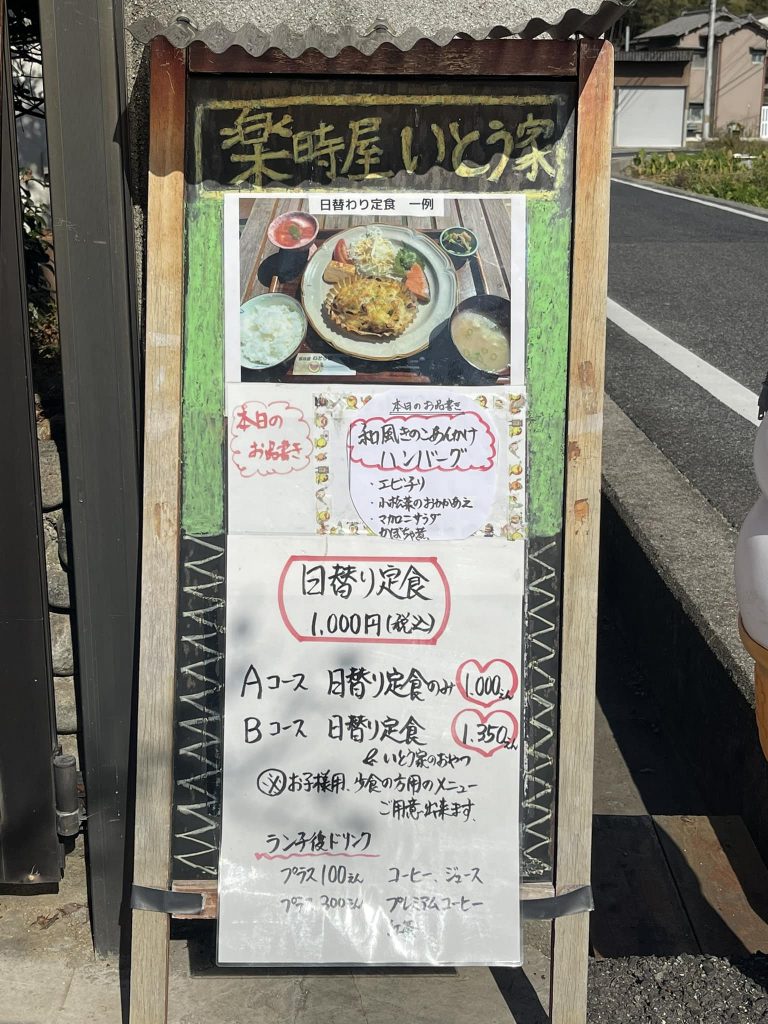 楽時屋 いとう家
日替わり定食 一例
本日の
お品書き
本日のお品書き
和風きのこあんかけ
ハンバーグ
・エビチリ
・小松菜のおかかあえ
・マカロニサラダ
かぼちゃ煮
日替り定食
1.000円(税込)
Aコース 日替り定食のみ 1.000えん
Bコース 日替り定食 1.350えん
& いとう家のおやつ
※お子様用、少食の方用のメニュー
ご用意出来ます。
ランチ後ドリンク
プラス100えん コーヒー、ジュース
プラス300えん プレミアムコーヒー